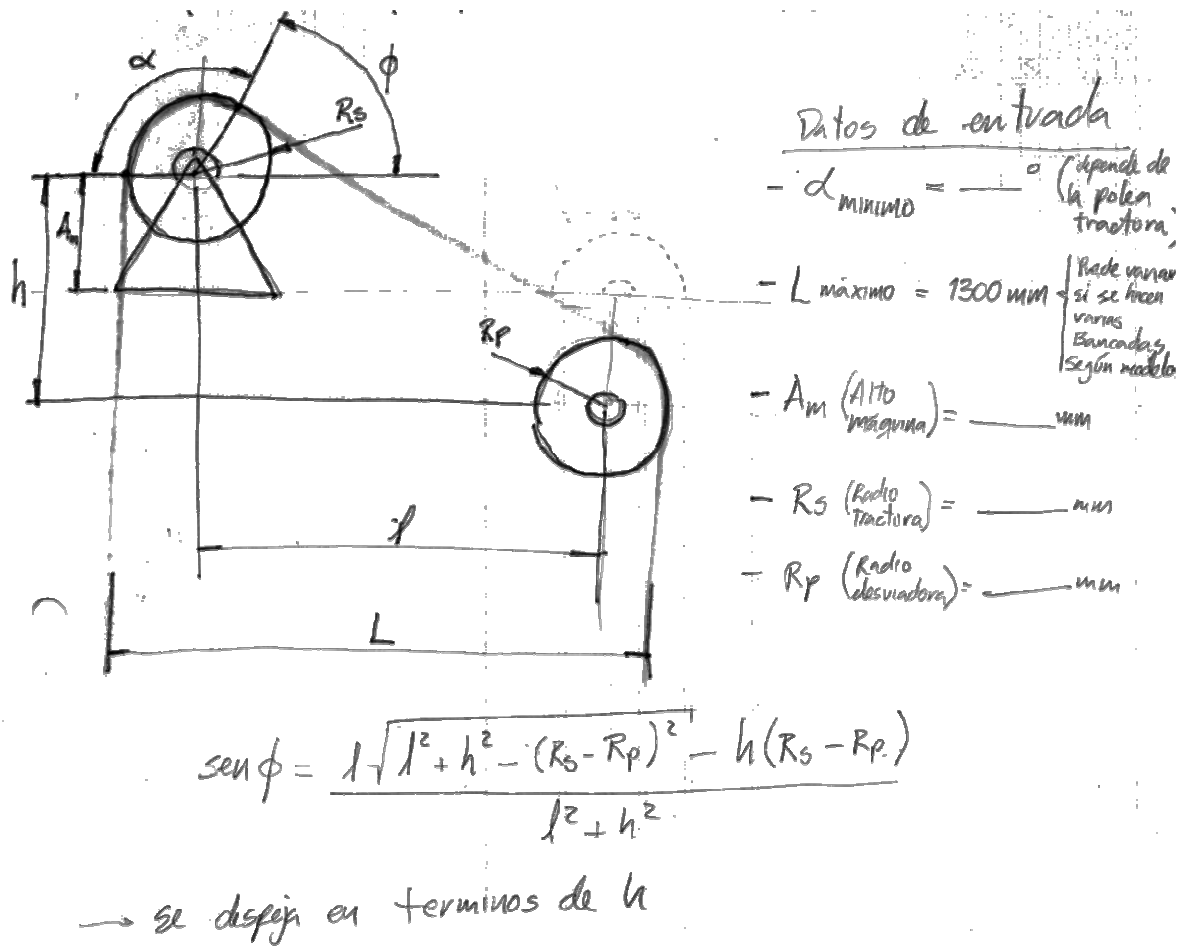 α
ϕ
Rs
Am
h
Rp
l
L
Datos de entrada
- α MINIMO = ____° (depende de
la polea
tractora)
- L máximo = 1300 mm
si se hacen
varias
Bancadas
según modelo
- Am (Alto máquina) = ____ mm
- Rs (Radio tractora) = ____ mm
- Rp (Radio desviadora) = ____ mm
sen ϕ = (l√(l² + h² - (Rs - Rp)²) - h(Rs - Rp)) / (l² + h²)
→ se despeja en terminos de h